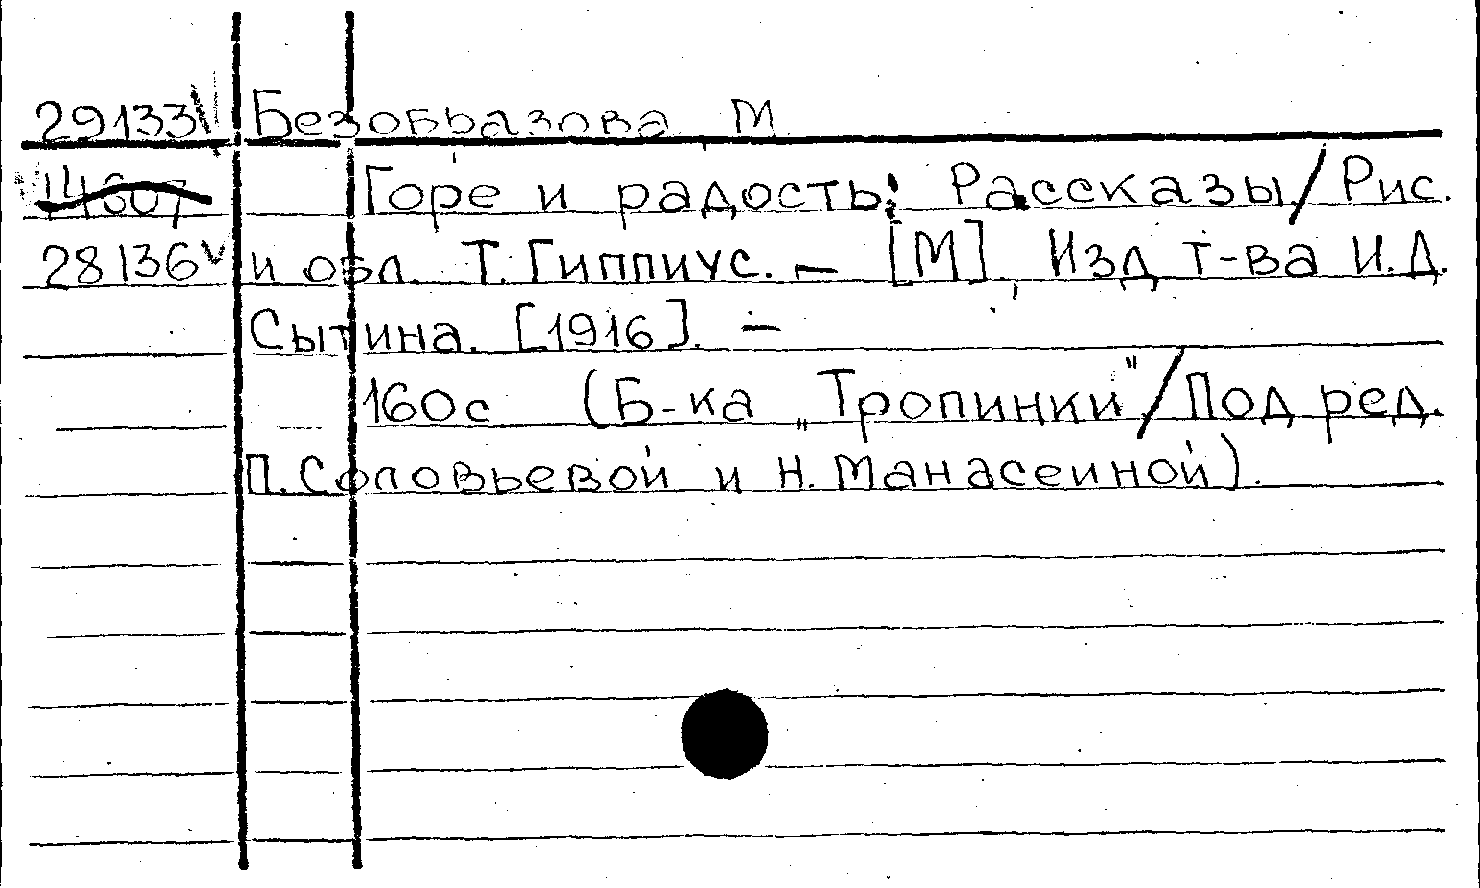 29133 Безобразова М
14607 Горе и радость: Рассказы/Рис.
28136 и обл. Т. Гиппиус. — [М]., Изд т-ва И.Д.
Сытина. [1916]. —
160с (Б-ка „Тропинки"/Под ред.
П. Соловьевой и Н. Манасеиной).